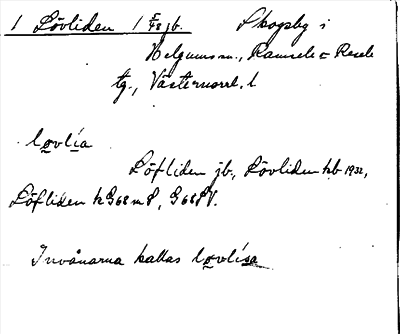 1 Lövliden 1 F/48 jb. Skogsby i
Helgums sn., Ramsele o Resele
tg., Västernorrl. l
lovlia
Löfliden jb., Lövliden kb 1932,
Löfliden k G68 m 8, G 68 V.
Invånarna kallas lovlisa